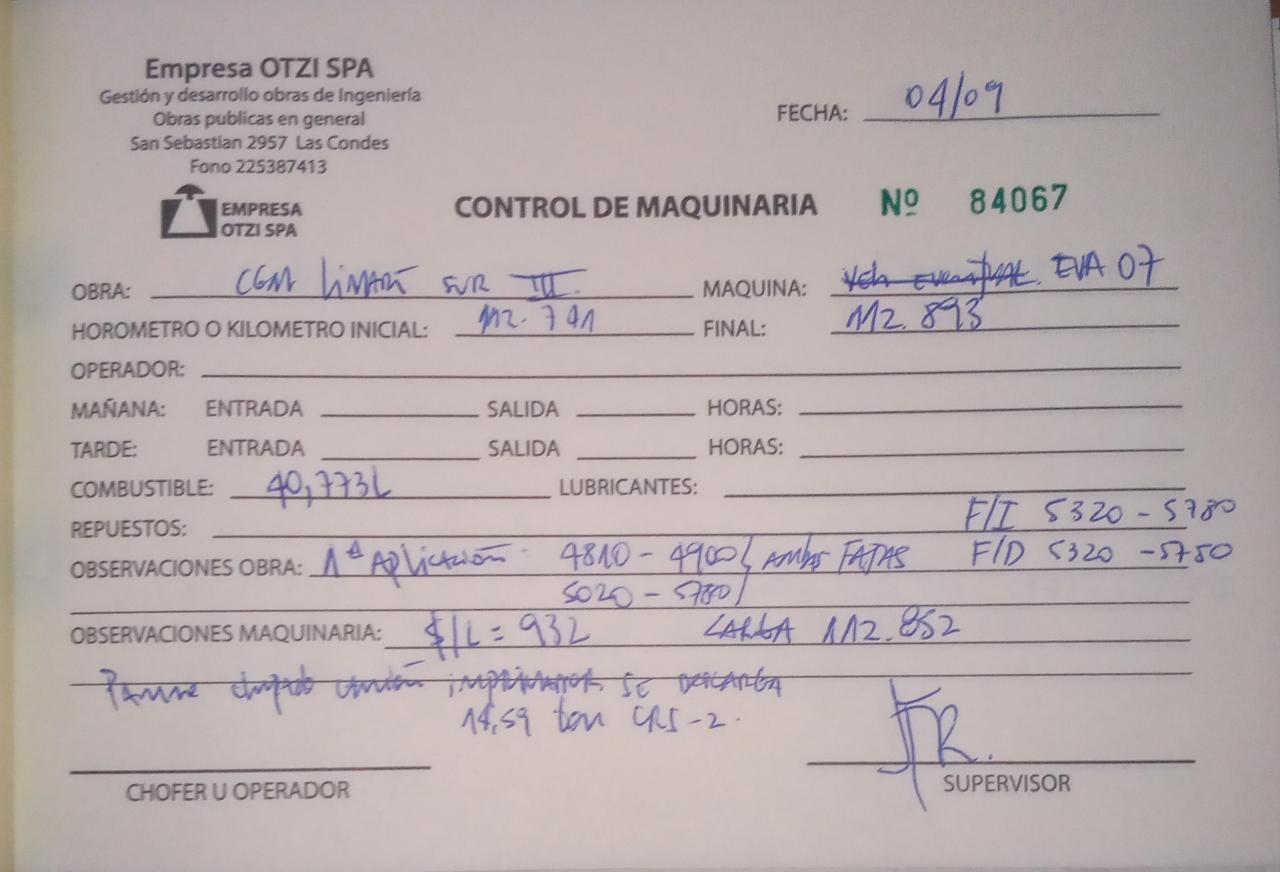 Empresa OTZI SPA
Gestión y desarrollo obras de Ingeniería
Obras publicas en general
San Sebastian 2957 Las Condes
Fono 225387413
EMPRESA
OTZI SPA
FECHA: 04/09
CONTROL DE MAQUINARIA Nº 84067
OBRA: CGM LiMARÍ SUR III. MAQUINA: EVA 07
HOROMETRO O KILOMETRO INICIAL: 112.741 FINAL: 112.893
OPERADOR:
MAÑANA: ENTRADA SALIDA HORAS:
TARDE: ENTRADA SALIDA HORAS:
COMBUSTIBLE: 40,773L LUBRICANTES:
REPUESTOS: F/I 5320 - 5780
OBSERVACIONES OBRA: 1ª Aplicación: 4810 - 4900 ambas FAJAS F/D 5320 - 5750
5020 - 5780
OBSERVACIONES MAQUINARIA: $/L = 932 CARGA 112.852
Panne unión imprimador SE DESCARGA
14,59 ton CRS-2.
CHOFER U OPERADOR
JR.
SUPERVISOR